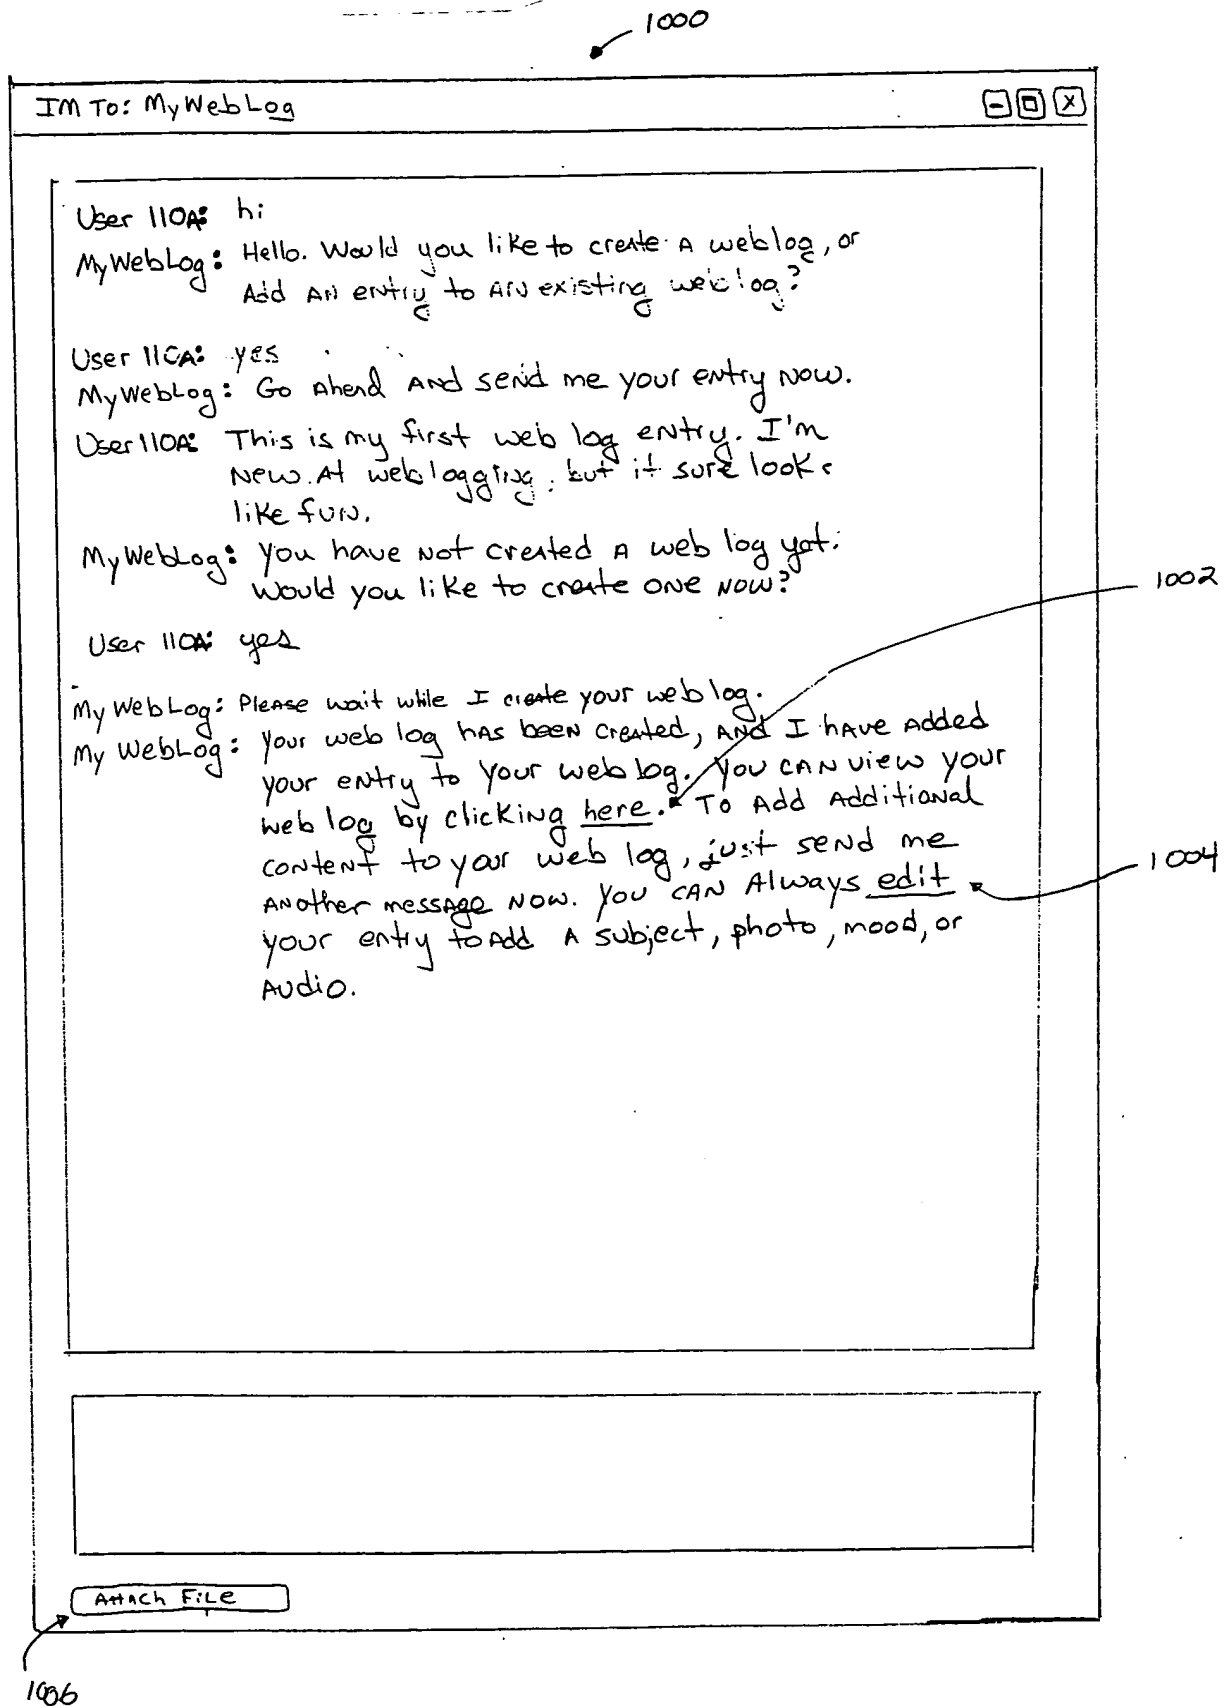 1000
IM To: MyWebLog
User 110A: hi
MyWebLog: Hello. Would you like to create a weblog, or
Add an entry to an existing weblog?
User 110A: yes
MyWebLog: Go Ahead And send me your entry now.
User 110A: This is my first web log entry. I'm
New At weblogging, but it sure looks
like fun.
MyWebLog: You have not created a web log yet.
Would you like to create one now?
1002
User 110A: yes
My WebLog: Please wait while I create your web log.
My WebLog: Your web log has been created, and I have added
your entry to your web log. You can view your
web log by clicking here. To Add Additional
content to your web log, just send me
1004
another message now. You can Always edit
your entry to Add a subject, photo, mood, or
Audio.
Attach File
1006